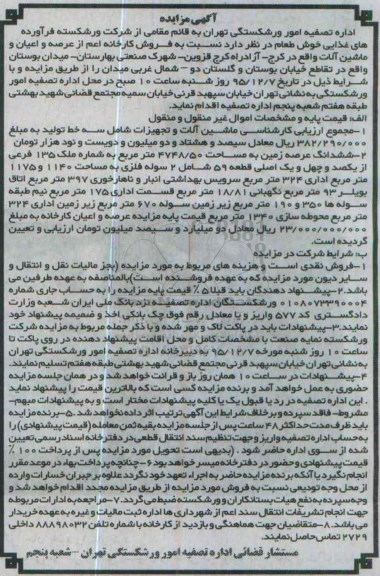 آگهی مزایده
اداره تصفیه امور ورشکستگی تهران به قائم مقامی از شرکت ورشکسته فرآورده
های غذایی خوش طعام در نظر دارد نسبت به فروش کارخانه اعم از عرصه و اعیان و
ماشین آلات واقع در کرج- آزادراه کرج قزوین- شهرک صنعتی بهارستان- میدان بوستان
واقع در تقاطع خیابان بوستان و گلستان دو – شمال غربی میدان را از طریق مزایده و با
شرایط ذیل در تاریخ ۹۵/۱۲/۷ روز شنبه ساعت ۱۰ صبح در محل اداره تصفیه امور
ورشکستگی به نشانی تهران خیابان سپهبد قرنی خیابان سمیه مجتمع قضائی شهید بهشتی
طبقه هفتم شعبه پنجم اداره تصفیه اقدام نماید.
الف: قیمت پایه و مشخصات اموال غیر منقول و منقول
۱-مجموع ارزیابی کارشناسی ماشین آلات و تجهیزات شامل سه خط تولید به مبلغ
۳۸۲/۲۹۰/۰۰۰ ریال معادل سیصد و هشتاد و دو میلیون و دویست و نود هزار تومان
۲-ششدانگ عرصه زمین به مساحت ۴۷۴۸/۵۰ متر مربع به شماره ملک ۱۳۵ فرعی
از یکصد و چهل و یک اصلی قطعه ۵۹ شامل ۲ سوله فلزی به مساحت ۱۱۴۰ و ۱۱۷۵
متر مربع اداری ۳۲۴ متر مربع سرویس بهداشتی انبار و ناهارخوری ۳۹۷ متر مربع اتاق
بویلر ۹۳ متر مربع نگهبانی ۱۸/۸۱ متر مربع قسمت اداری ۱۷۵ متر مربع نیم طبقه
سوله ها ۳۵۰ و ۱۹۰ متر مربع زیر زمین سوله ۶۷۰ متر مربع زیر زمین اداری ۳۲۴
متر مربع محوطه سازی ۱۳۴۰ متر مربع قیمت پایه مزایده عرصه و اعیان کارخانه به مبلغ
۲۳/۰۰۰/۰۰۰/۰۰۰ ریال معادل دو میلیارد و سیصد میلیون تومان ارزیابی و تعیین
گردیده است.
ب: شرایط شرکت در مزایده
۱-فروش نقدی است و هزینه های مربوط به مورد مزایده (بجز مالیات نقل و انتقال و
سایر دیون مورد مزایده که به عهده فروشنده است) بالمناصفه به عهده طرفین می
باشد.۲-پیشنهاد دهندگان باید قبلا ۵ ٪ قیمت پایه مزایده را به حساب جاری شماره
۰۱۰۸۰۷۳۳۹۰۰۰۴ ورشکستگان اداره تصفیه نزد بانک ملی ایران شعبه وزارت
دادگستری کد ۵۷۷ واریز و یا معادل رقم فوق چک بانکی اخذ و ضمیمه پیشنهاد خود
نمایند.۳-پیشنهادات باید در پاکت لاک و مهر شده و با ذکر جمله مربوط به مزایده شرکت
ورشکسته نمایه صنعت با مشخصات کامل و محل اقامت پیشنهاد دهنده در روی پاکت تا
ساعت ۱۰ روز شنبه مورخه ۹۵/۱۲/۷ به دبیرخانه اداره تصفیه امور ورشکستگی تهران
به نشانی تهران خیابان سپهبد قرنی مجتمع قضائی شهید بهشتی طبقه هفتم تسلیم نمایند.
۴-پیشنهادات در ساعت ۱۰ همان روز باز و قرائت خواهد شد و در همان جلسه مزایده
حضوری به عمل خواهد آمد و برنده مزایده کسی است که بالاترین قیمت را پیشنهاد نماید
. این اداره تصفیه در رد یا قبول یک یا کلیه پیشنهادات مختار است و به پیشنهادات مبهم-
مشروط- فاقد سپرده و برخلاف شرایط این آگهی ترتیب اثر داده نخواهد شد .۵-برنده مزایده
باید ظرف مدت حداکثر ۴۸ ساعت پس از جلسه مزایده بقیه ثمن معامله (قیمت پیشنهادی) را
به حساب اداره تصفیه واریز و جهت تنظیم سند انتقال قطعی در دفترخانه اسناد رسمی تعیین
شده از سوی اداره حاضر شود . (بدیهی است تحویل مورد مزایده پس از پرداخت ۱۰۰ ٪
قیمت پیشنهادی و حضور در دفترخانه میسر خواهد بود۶-چنانچه پرداخت بهاء در موعد مقرر
انجام نگیرد یا آنکه برنده مزایده حاضر به اجراء تعهد خود نگردد علاوه بر جبران خسارات وارده
از محل وجه تودیعی نسبت به فروش مورد مزایده از طریق مزایده مجدد اقدام خواهد شد و
وجه سپرده به نفع هیات بستانکاران و ورشکسته ضبط می گردد.۷-مراجعه به ادارات مربوطه
جهت انجام تشریفات انتقال سند اعم از شهرداری ها اداره ثبت مالیات و غیره به عهده خریدار
می باشد.۸-متقاضیان جهت هماهنگی و بازدید از کارخانه با شماره تلفن ۸۸۸۹۸۰۳۲ داخلی
۲۷۲۹ تماس حاصل نمایند.
مستشار قضائی اداره تصفیه امور ورشکستگی تهران –شعبه پنجم